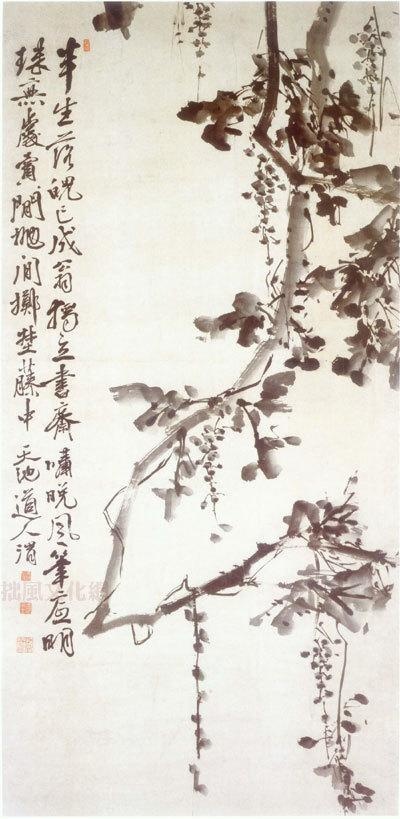 半生落魄已成翁獨立書齋嘯晚風筆底明
珠無處賣閒拋閒擲野藤中 天池道人渭
拙風文化網